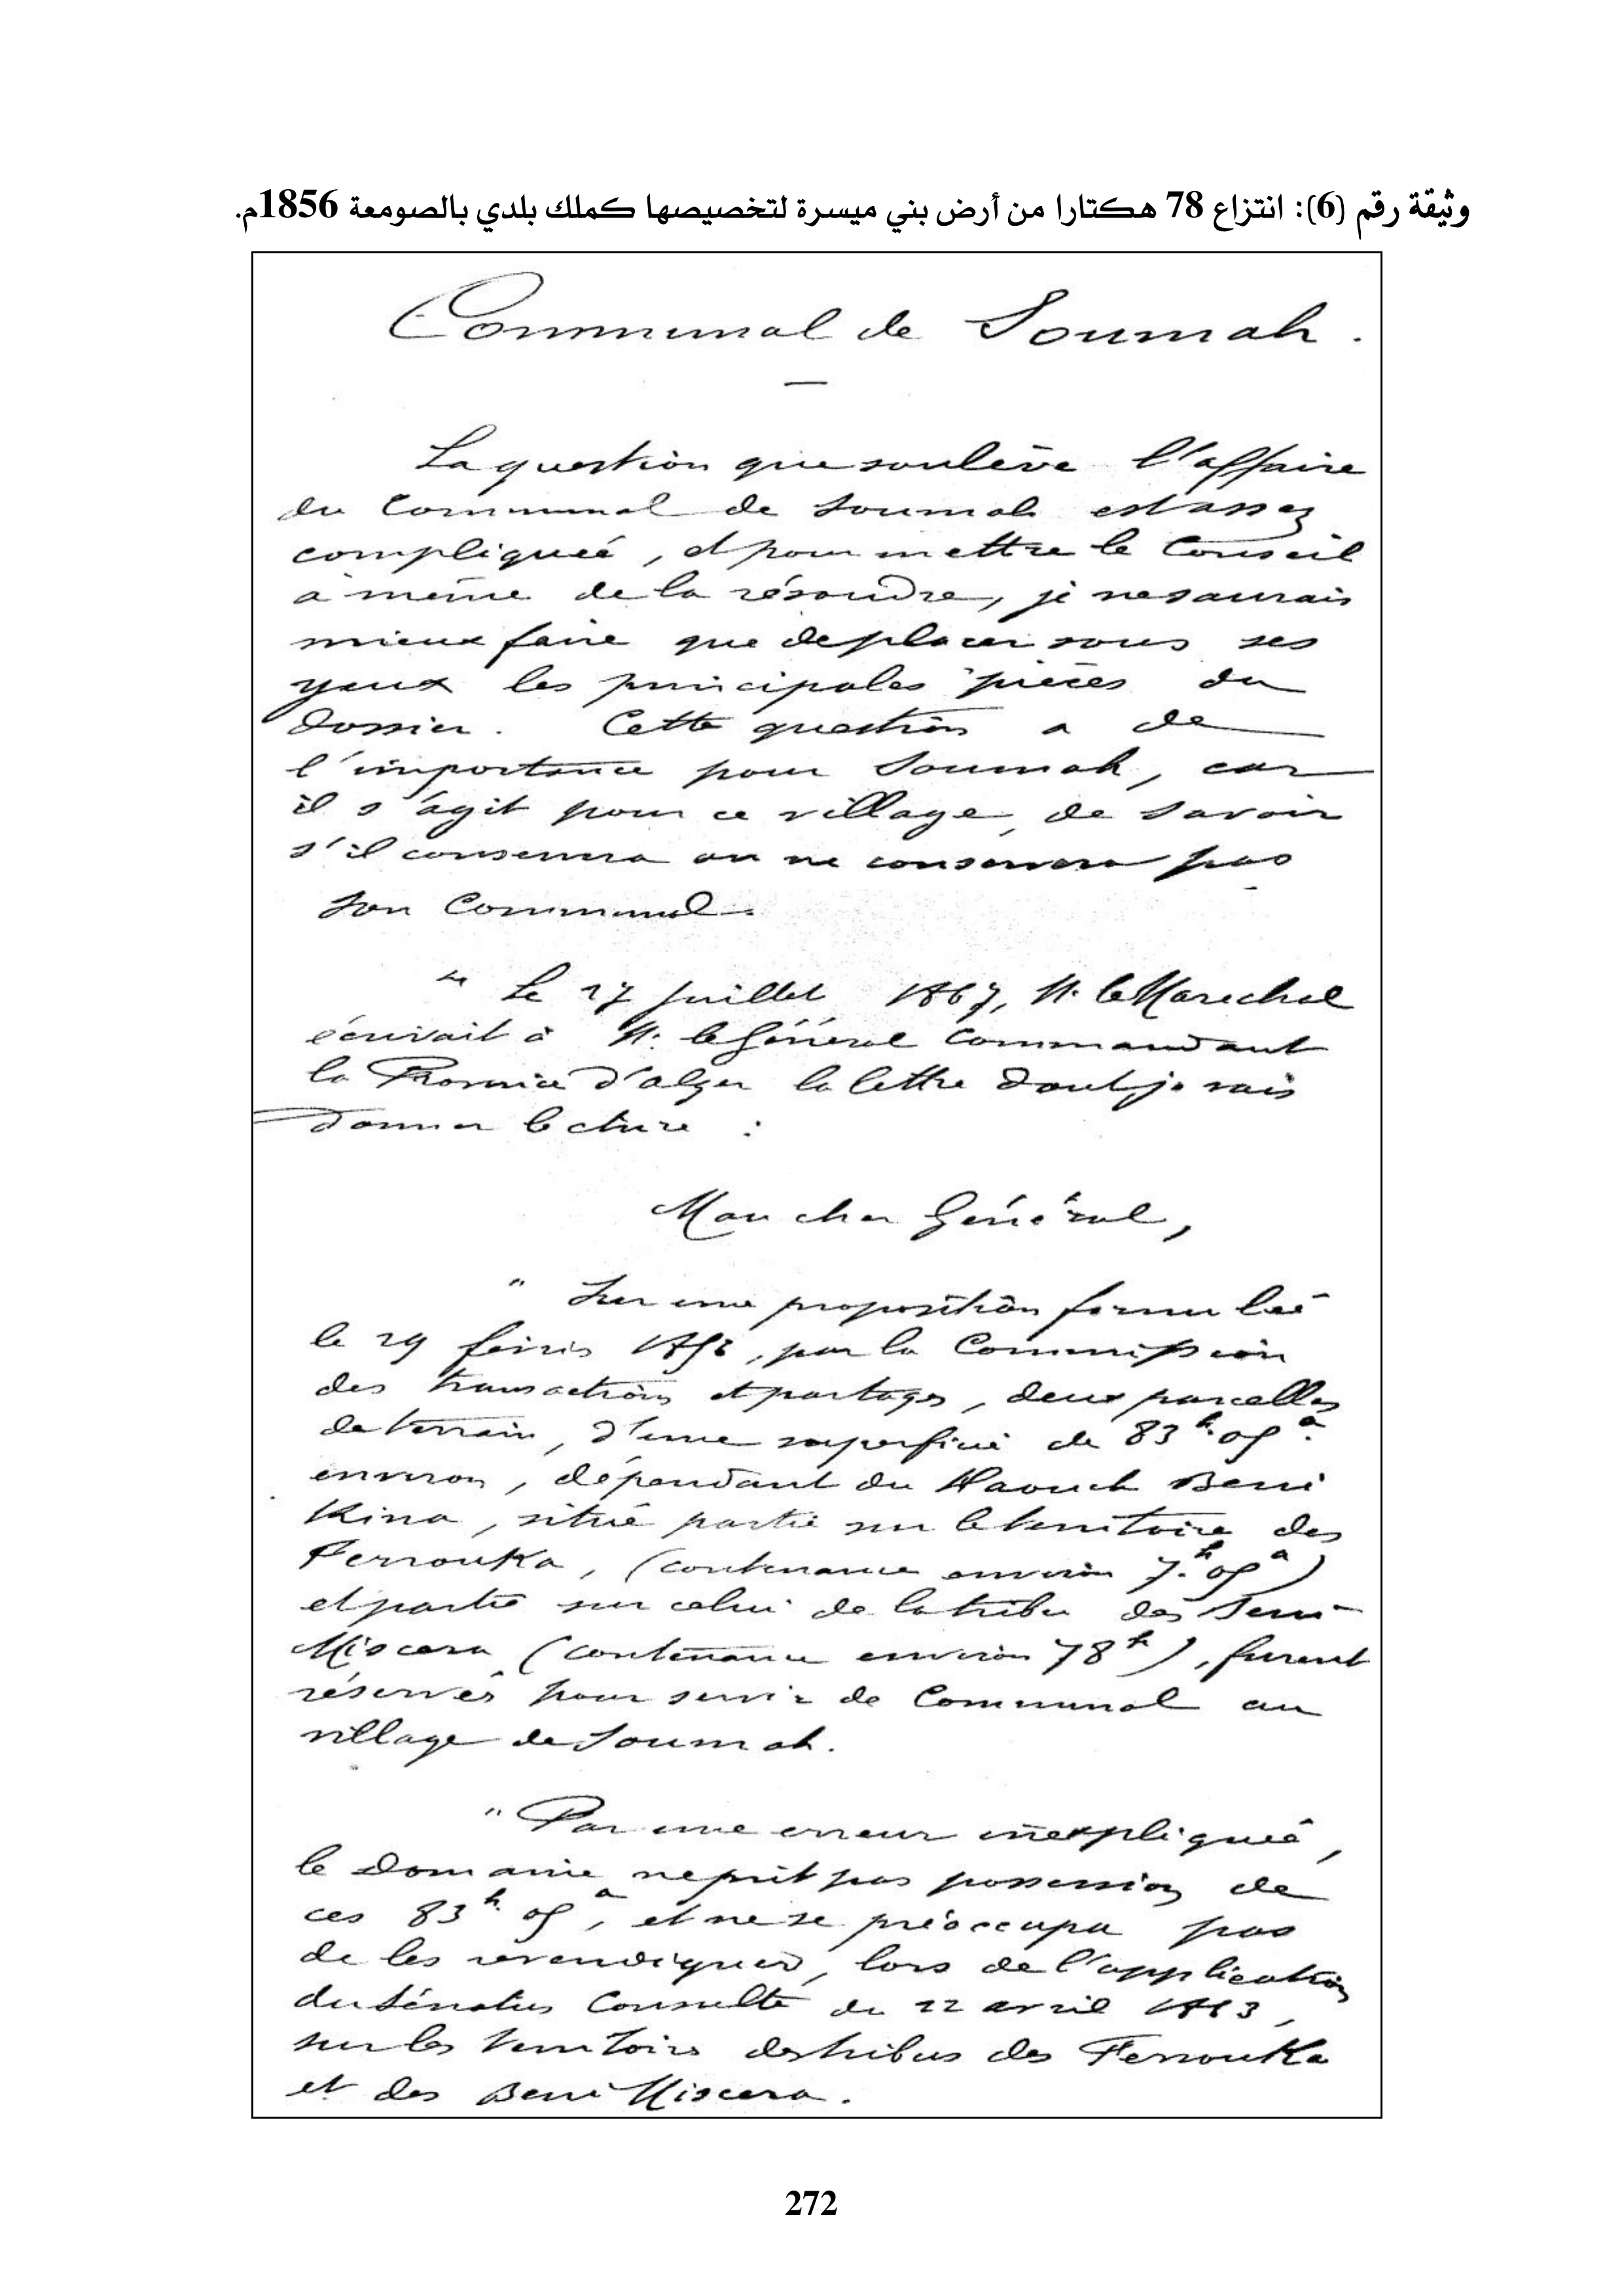 وثيقة رقم (6): انتزاع 78 هكتارا من أرض بني ميسرة لتخصيصها كملك بلدي بالصومعة 1856م.
Communal de Soumah.
La question que soulève l'affaire
du Communal de Soumah est assez
compliquée, et pour mettre le Conseil
à même de la résoudre, je ne saurais
mieux faire que de placer sous ses
yeux les principales pièces du
dossier. Cette question a de
l'importance pour Soumah, car
il s'agit pour ce village, de savoir
s'il conservera ou ne conservera pas
son Communal.
" Le 27 juillet 1867, M. le Maréchal
écrivait à M. le Général Commandant
la Province d'Alger la lettre dont je vais
donner lecture :
Mon cher Général,
" Sur une proposition formulée
le 29 par la Commission
des transactions et partages, deux parcelles
de terrain, d'une superficie de 83h. 05a.
environ, dépendant du Haouch Beni
Kina, situé partie sur le territoire des
Ferrouka, (contenance environ 7h. 05a)
et partie sur celui de la tribu des Beni
Miscera (contenance environ 78h), furent
réservés pour servir de Communal au
village de Soumah.
" Par une erreur inexpliquée,
le Domaine ne prit pas possession de
ces 83h. 05a, et ne se préoccupa pas
de les revendiquer, lors de l'application
du Sénatus Consulte du 22 avril 1863,
sur les territoires des tribus des Ferrouka
et des Beni Miscera.
272